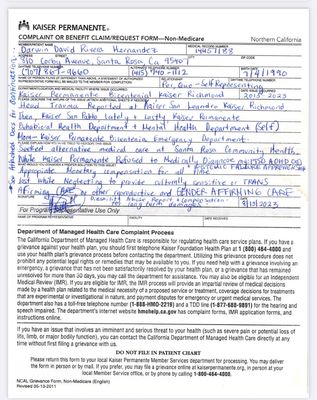 KAISER PERMANENTE®
COMPLAINT OR BENEFIT CLAIM/REQUEST FORM—Non-Medicare
Northern California
David Rivera Hernandez
MEDICAL RECORD NUMBER
STREET CITY STATE ZIP CODE
Corby Avenue, Santa Rosa, Ca 95401
(707) 367-9660
(415) 940-1112
Per, Que - Self Representing
DEPARTMENT/LOCATION AND MEDICAL FACILITY WHERE ISSUE OCCURRED
Kaiser Permanente Bicentenial Kaiser Richmond 2015-2023
Head Trauma Reported at Kaiser San Leandro Kaiser Richmond
then, Kaiser San Pablo Lately & Lastly Kaiser Permanente
Behavioral Health Department & Mental Health Department (Self)
Kaiser Permanente Bicentenia Emergency Department.
Seeked alternative medical care at Santa Rosa Community Health.
While Kaiser Permanente Refused to Medically Diagnose
Appropriate Monetary compensation for all time
lost while Neglecting to provide culturally sensitive or TRANS
Affirming CARE or other reproductive and GENDER AFFIRMING CARE
SIGNATURE
For Program Representative Use Only
Department of Managed Health Care Complaint Process
The California Department of Managed Health Care is responsible for regulating health care service plans. If you have a
grievance against your health plan, you should first telephone your Kaiser Foundation Health Plan at 1 (800) 464-4000 and
use your health plan's grievance process before contacting the department. Utilizing this grievance procedure does not
prohibit any potential legal rights or remedies that may be available to you. If you need help with a grievance involving an
emergency, a grievance that has not been satisfactorily resolved by your health plan, or a grievance that has remained
unresolved for more than 30 days, you may call the department for assistance. You may also be eligible for an Independent
Medical Review (IMR). If you are eligible for IMR, the IMR process will provide an impartial review of medical decisions
made by a health plan related to the medical necessity of a proposed service or treatment, coverage decisions for treatments
that are experimental or investigational in nature, and payment disputes for emergency or urgent medical services. The
department also has a toll-free telephone number (1-888-HMO-2219) and a TDD line (1-877-688-9891) for the hearing and
speech impaired. The department's internet website hmohelp.ca.gov has complaint forms, IMR application forms, and
instructions online.
If you have an issue that involves an imminent and serious threat to your health (such as severe pain or potential loss of
life, limb, or major bodily function), you can contact the California Department of Managed Health Care directly at any
time without first filing a grievance with us.
DO NOT FILE IN PATIENT CHART
Please return this form to your local Kaiser Permanente Member Services department for processing. You may deliver
the form in person or by mail. If you prefer, you may file a grievance online at kaiserpermanente.org, in person at your
local Member Service office, or by phone by calling 1-800-464-4000.
NCAL Grievance Form, Non-Medicare (English)
Revised 05-13-2011